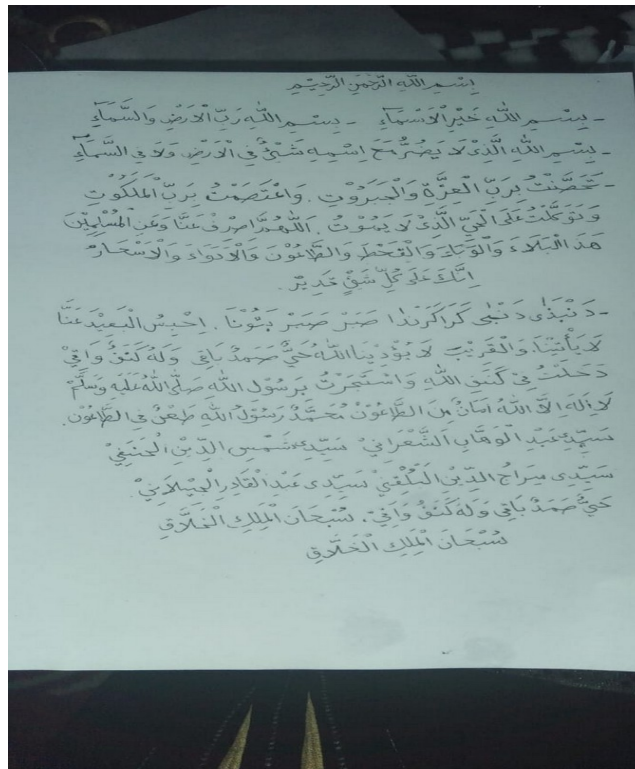 بِسْمِ اللهِ الرَّحْمٰنِ الرَّحِيْمِ
- بِسْمِ اللهِ خَيْرِ الْاَسْمَآءِ - بِسْمِ اللهِ رَبِّ الْاَرْضِ وَالسَّمَآءِ
- بِسْمِ اللهِ الَّذِىْ لَا يَضُرُّ مَعَ اسْمِهِ شَىْءٌ فِى الْاَرْضِ وَلَا فِى السَّمَآءِ
- تَحَصَّنْتُ بِرَبِّ الْعِزَّةِ وَالْجَبَرُوْتِ . وَاعْتَصَمْتُ بِرَبِّ الْمَلَكُوْتِ
وَتَوَكَّلْتُ عَلَى الْحَيِّ الَّذِىْ لَا يَمُوْتُ . اَللّٰهُمَّ اصْرِفْ عَنَّا وَعَنِ الْمُسْلِمِيْنَ
هَذَ الْبَلَاءَ وَالْوَبَاءَ وَالْقَحْطَ وَالطَّاعُوْنَ وَالْاَدْوَاءَ وَالْاَسْحَارَ
اِنَّكَ عَلَى كُلِّ شَىْءٍ قَدِيْرٌ .
صَبْرٌ صَبْرٌ . اِحْبِسِ الْبَعِيْدَ عَنَّا
لَا يَأْتِيْنَا وَالْقَرِيْبُ لَا يُؤْذِيْنَا اللهُ حَيٌّ صَمَدٌ بَاقِى وَلَهُ كَنَفٌ وَاقِيْ
دَخَلْتُ فِيْ كَنَفِ اللهِ وَاسْتَجَرْتُ بِرَسُوْلِ اللهِ صَلَّى اللهُ عَلَيْهِ وَسَلَّمْ
لَا اِلَهَ اِلَّا اللهُ اَمَانٌ مِنَ الطَّاعُوْنْ مُحَمَّدٌ رَسُوْلُ اللهِ طَعْنٌ فِى الطَّاعُوْنْ.
سَيِّدِىْ عَبْدِ الْوَهَّابِ الشَّعْرَانِيْ سَيِّدِىْ شَمْسِ الدِّيْنِ الْحَنَفِيْ
سَيِّدِى سِرَاجُ الدِّيْنِ الْبُلْقِنِيْ سَيِّدِى عَبْدِ الْقَادِرِ الْجِيْلَانِيْ
حَيٌّ صَمَدٌ بَاقِى وَلَهُ كَنَفٌ وَاقِيْ . سُبْحَانَ الْمَلِكِ الْخَلَّاقِ
سُبْحَانَ الْمَلِكِ الْخَلَّاقِ